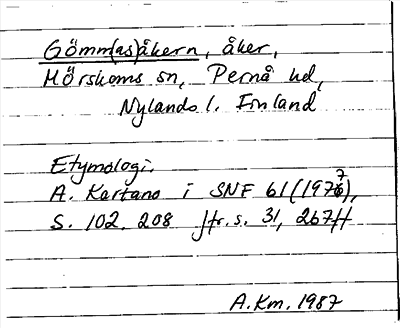 Gömm(as)åkern, åker,
Mörskoms sn, Pernå hd,
Nylands l. Finland
Etymologi.
A. Kartano i SNF 61 (1977),
S. 102, 208 Jfr. s. 31, 267ff
A.Km. 1987